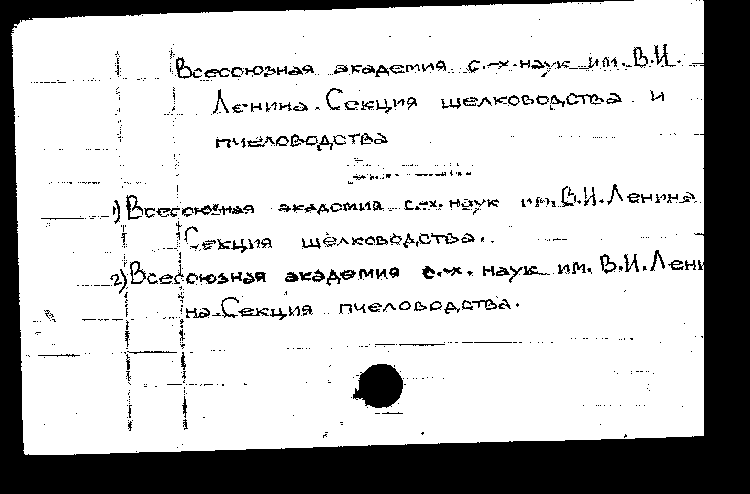 Всесоюзная академия с.-х. наук им. В.И.
Ленина. Секция шелководства и
пчеловодства
1) Всесоюзная академия с.-х. наук им. В.И. Ленина
Секция шелководства.
2) Всесоюзная академия с.-х. наук им. В.И. Лени
на. Секция пчеловодства.